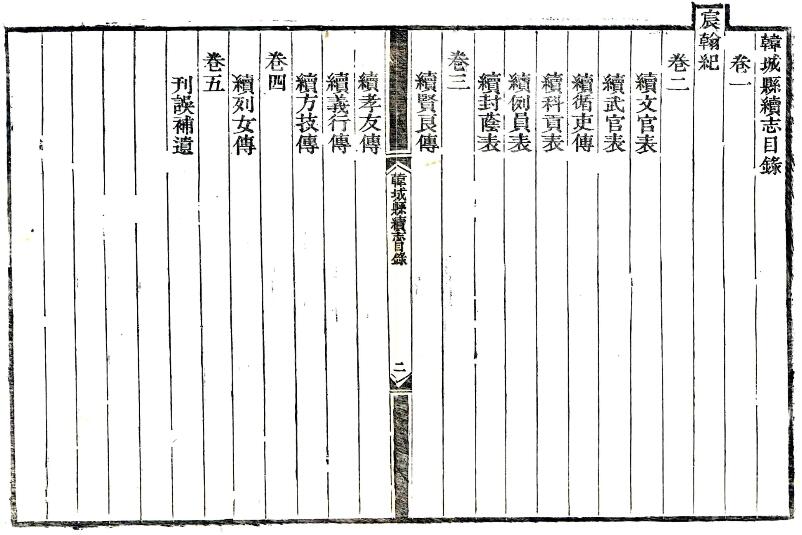 韓城縣續志目錄
卷一
宸翰紀
卷二
續文官表
續武官表
續循吏傳
續科貢表
續例員表
續封蔭表
卷三
續賢良傳
韓城縣續志目錄
二
續孝友傳
續義行傳
續方技傳
卷四
續列女傳
卷五
刊誤補遺